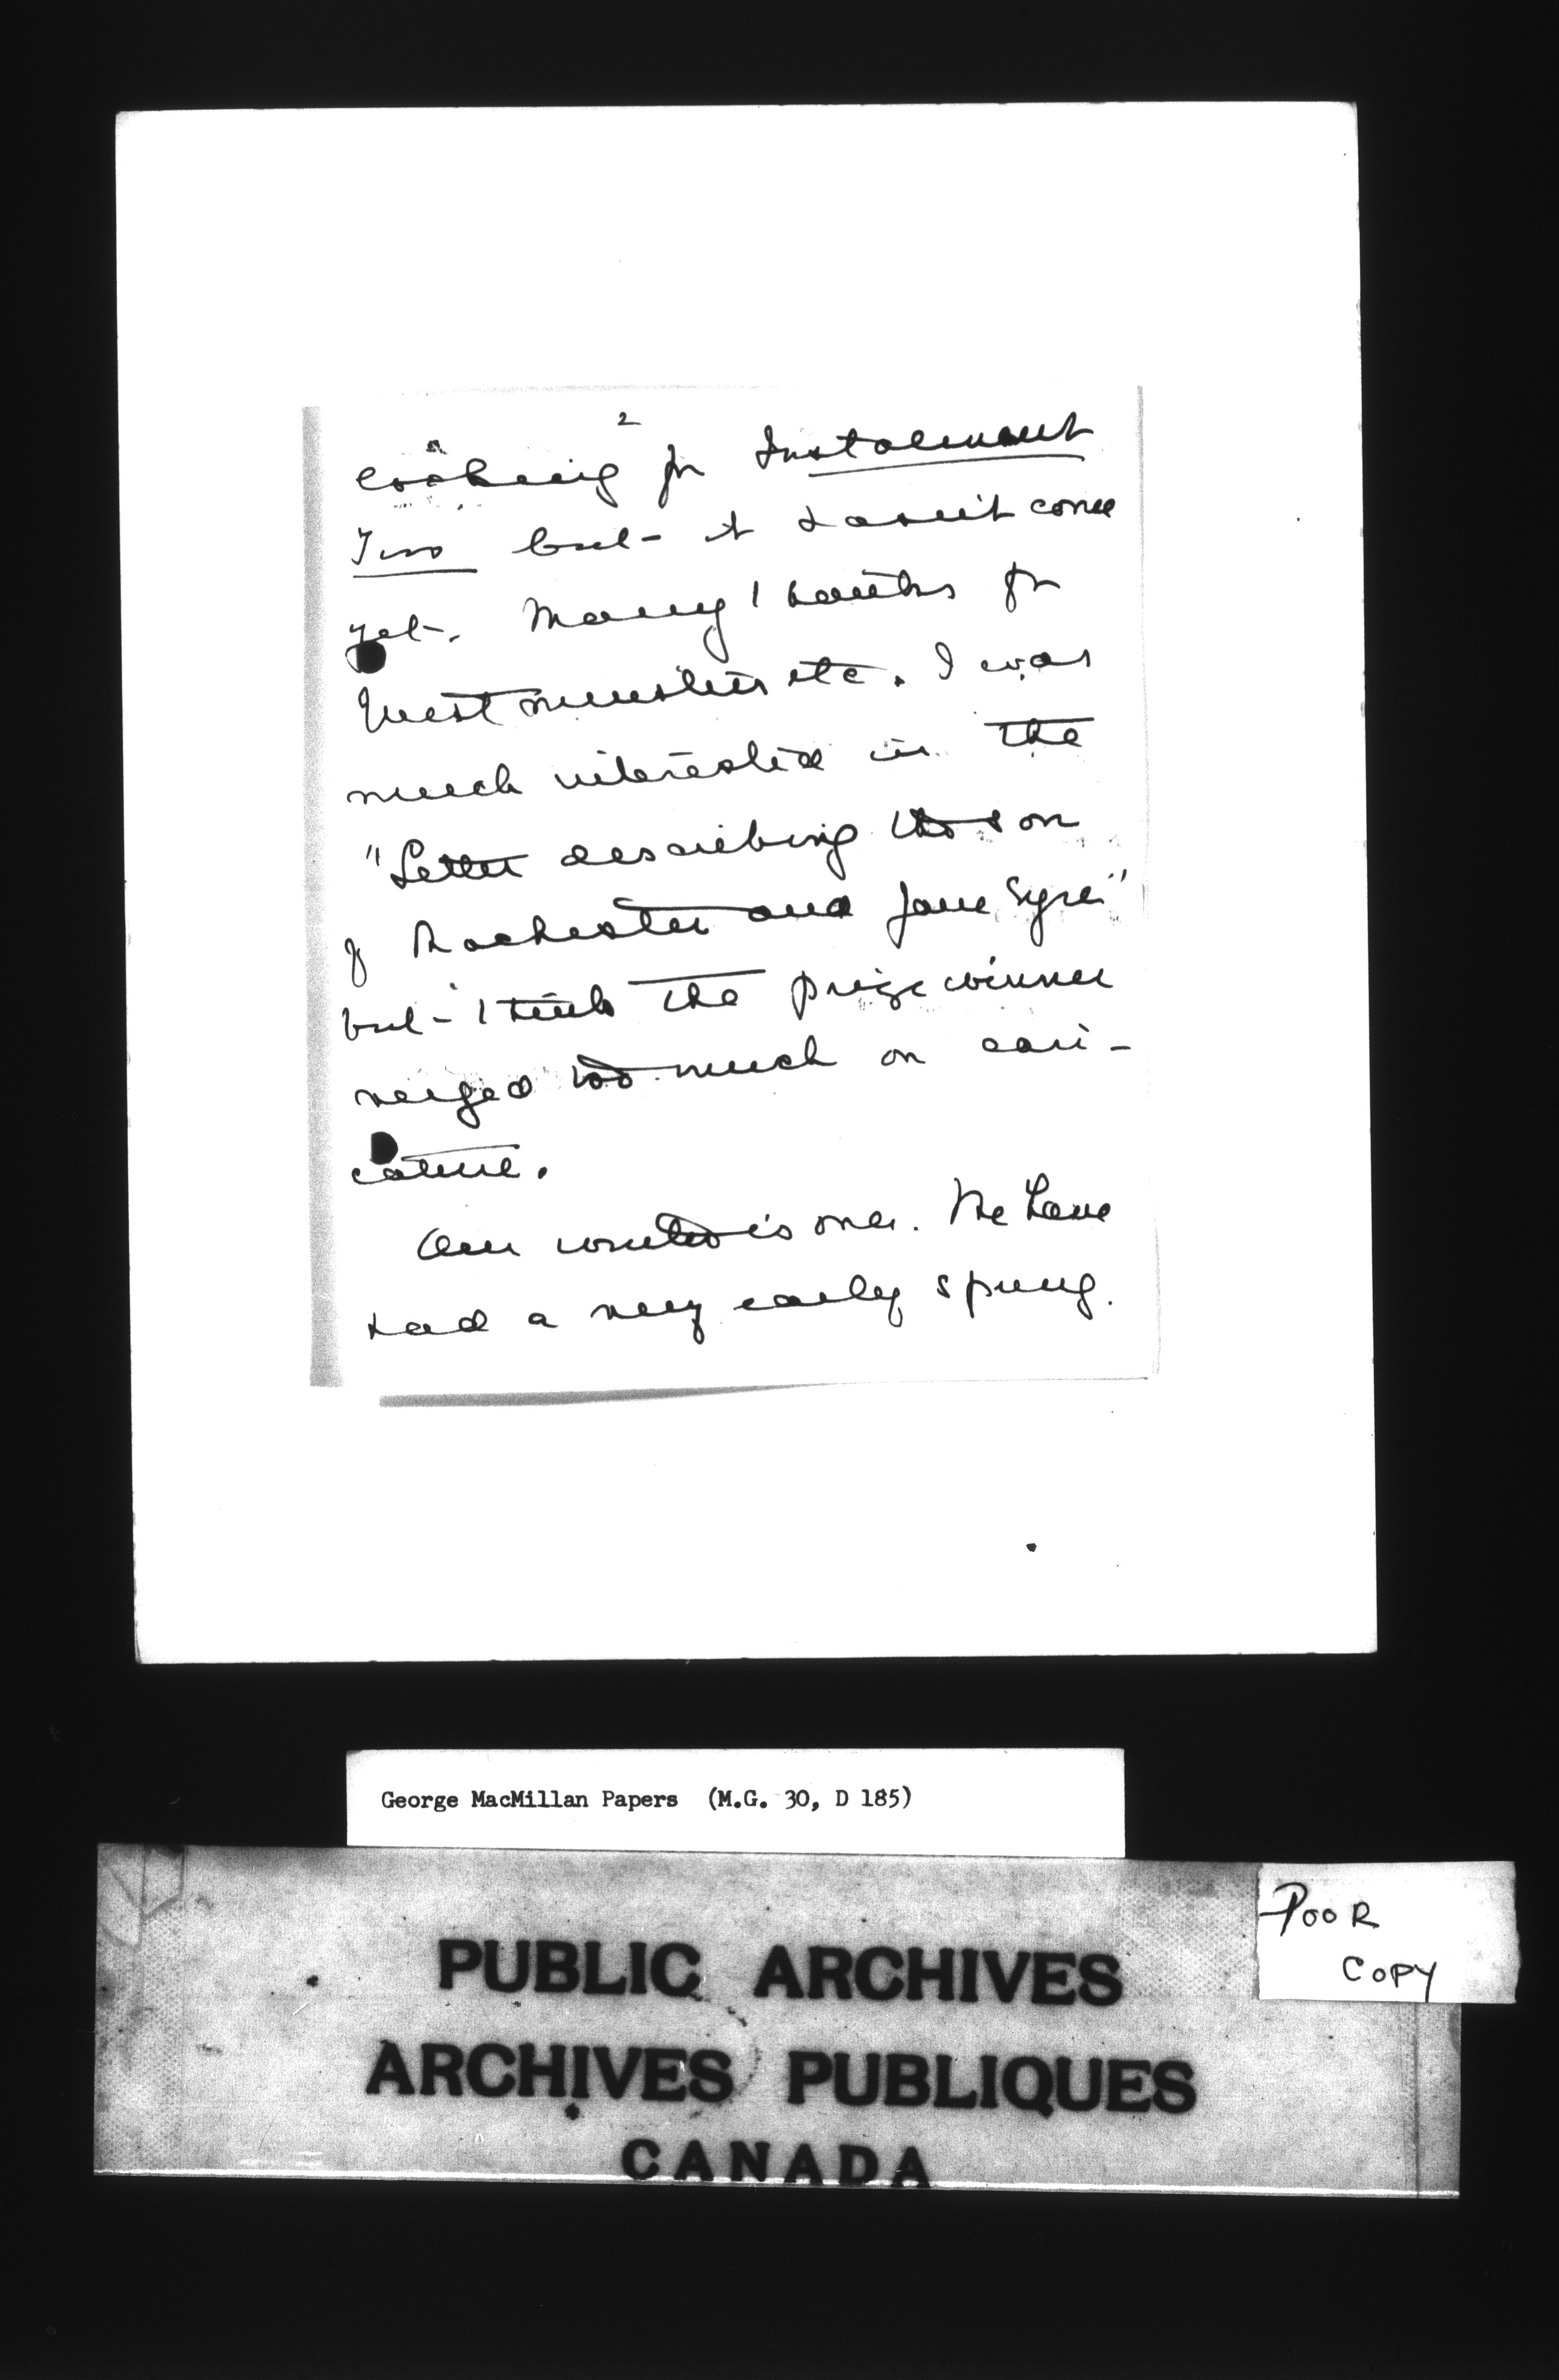 2
looking for Instalment
Two but it hasn't come
yet. Many thanks for
Westminsters etc. I was
much interested in the
"Letter describing the son
of Rochester and Jane Eyre"
but I think the prize winner
verged too much on cari-
cature.
Our winter is over. We have
had a very early spring.
George MacMillan Papers (M.G. 30, D 185)
POOR
COPY
PUBLIC ARCHIVES
ARCHIVES PUBLIQUES
CANADA